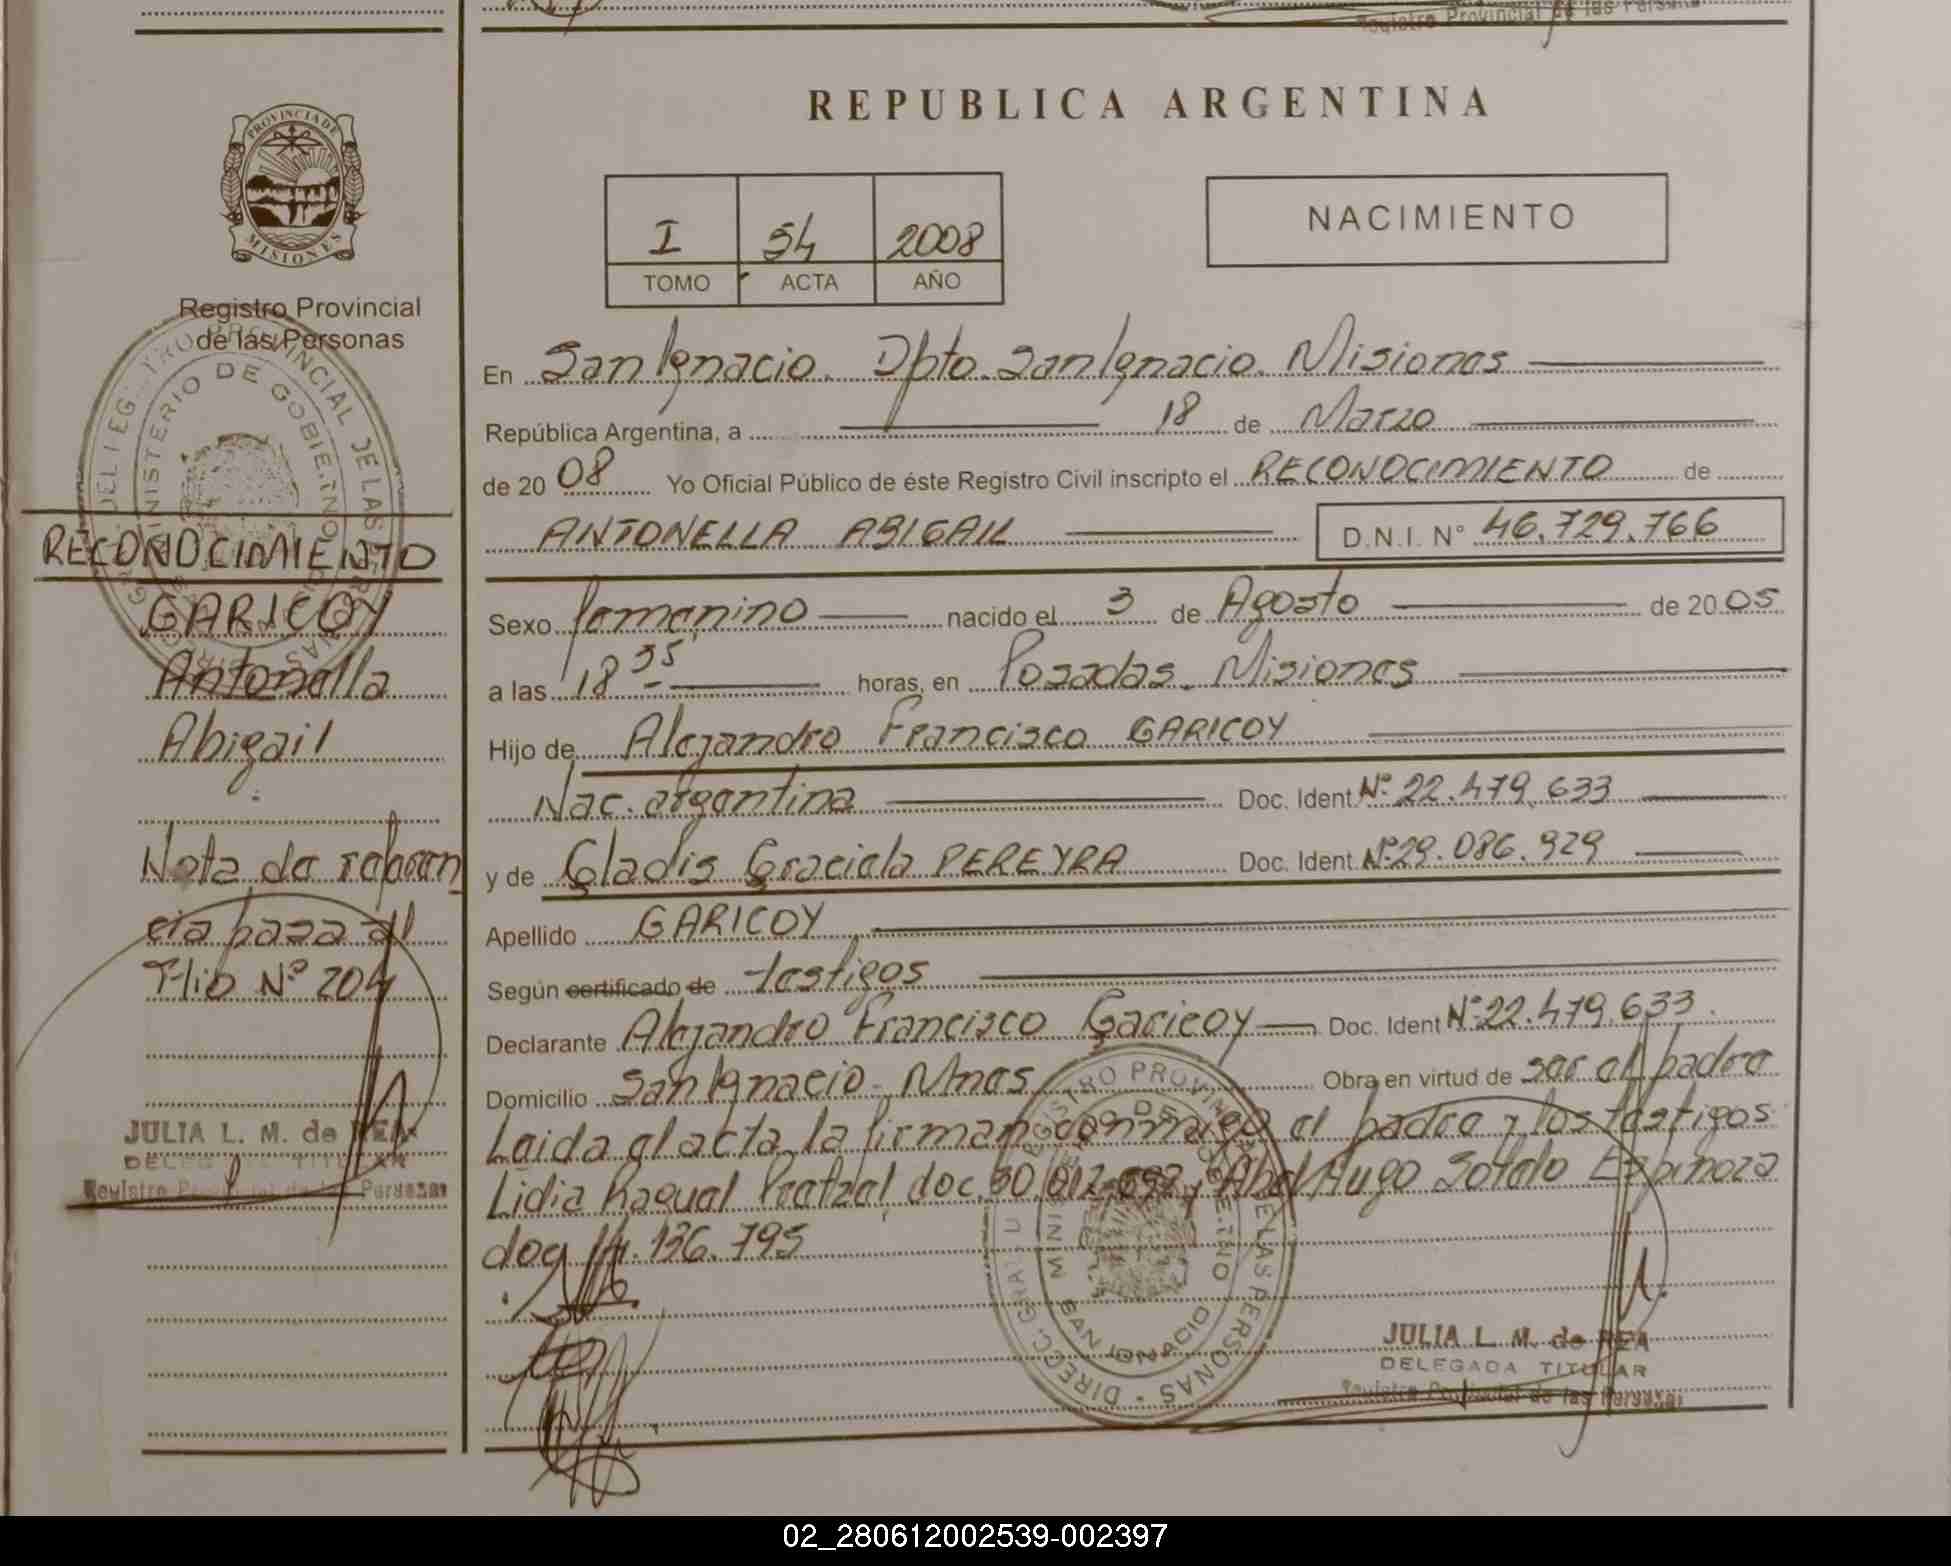 Registro Provincial de las Personas
REPUBLICA ARGENTINA
PROVINCIA DE
MISIONES
I 54 2008
TOMO ACTA AÑO
NACIMIENTO
Registro Provincial
de las Personas
En San Ignacio. Dpto. San Ignacio. Misiones
República Argentina, a 18 de Marzo
de 20 08 Yo Oficial Público de éste Registro Civil inscripto el RECONOCIMIENTO de
ANTONELLA ABIGAIL D.N.I. N° 46.729.766
Sexo femenino nacido el 3 de Agosto de 20 05
a las 18 35 horas, en Posadas. Misiones
Hijo de Alejandro Francisco GARICOY
Nac. argentina Doc. Ident N° 22.479.633
y de Gladis Graciela PEREYRA Doc. Ident. N° 29.086.929
Apellido GARICOY
Según certificado de testigos
Declarante Alejandro Francisco Garicoy Doc. Ident N° 22.479.633.
Domicilio San Ignacio. Mnes Obra en virtud de ser el padre
Leida el acta la firman conmigo el padre y los testigos
Lidia Raquel doc. 30.012.692 y Abel Hugo Sotelo Espinoza
doc 136.795
RECONOCIMIENTO
GARICOY
Antonella
Abigail
Nota de referen
cia pasa al
Flio N° 204
JULIA L. M. de REA
DELEGADA TITULAR
Registro Provincial de las Personas
REGISTRO PROVINCIAL DE LAS PERSONAS
MINISTERIO DE GOBIERNO
SAN IGNACIO
JULIA L. M. de REA
DELEGADA TITULAR
Registro Provincial de las Personas
02_280612002539-002397